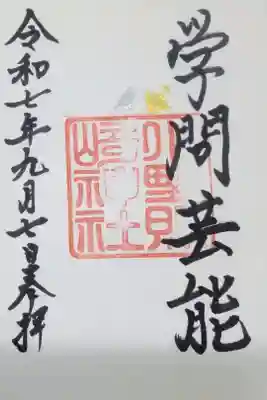 学問芸能
令和七年九月七日奉拝